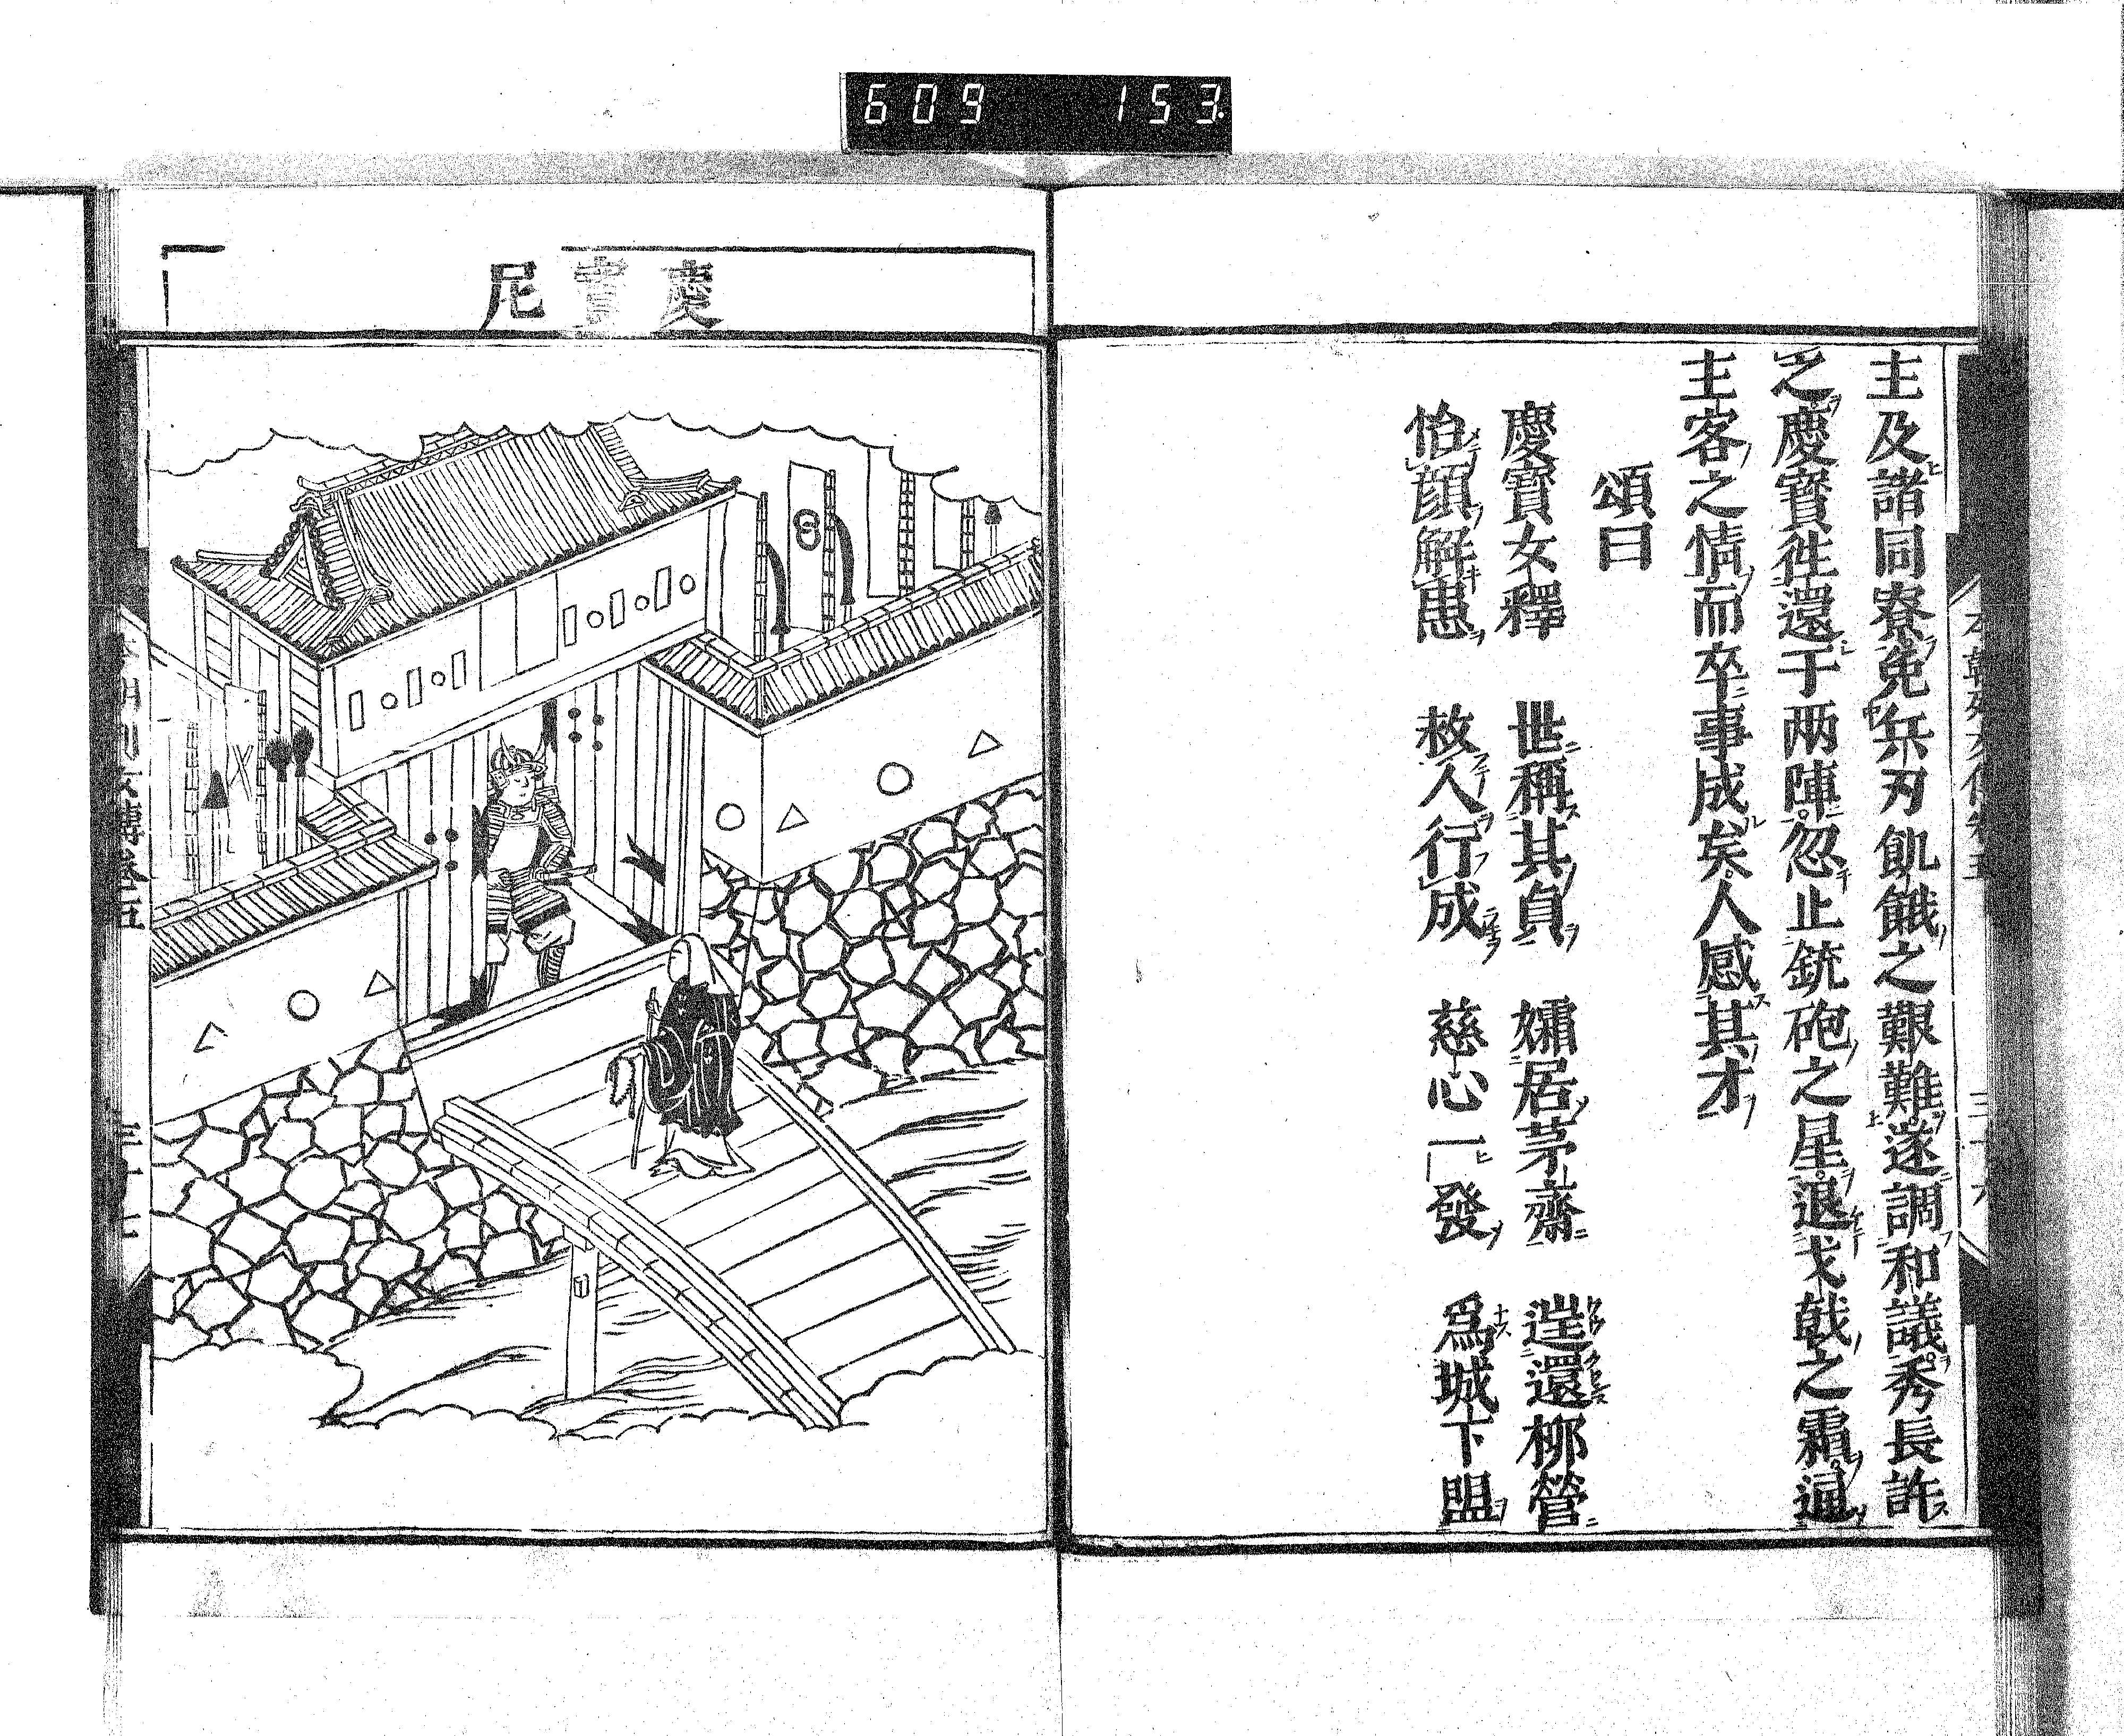 609 153
主及諸同寮免兵刃飢餓之艱難遂調和議秀長許
之慶寶往還于两陣忽止銃砲之星退戈戟之霜通
主客之情而卒事成矣人感其才
頌曰
慶寶女釋 世稱其貞 孀居茅齋 逬還柳營
怡顔解愚 救人行成 慈心一發 爲城下盟
慶寶尼